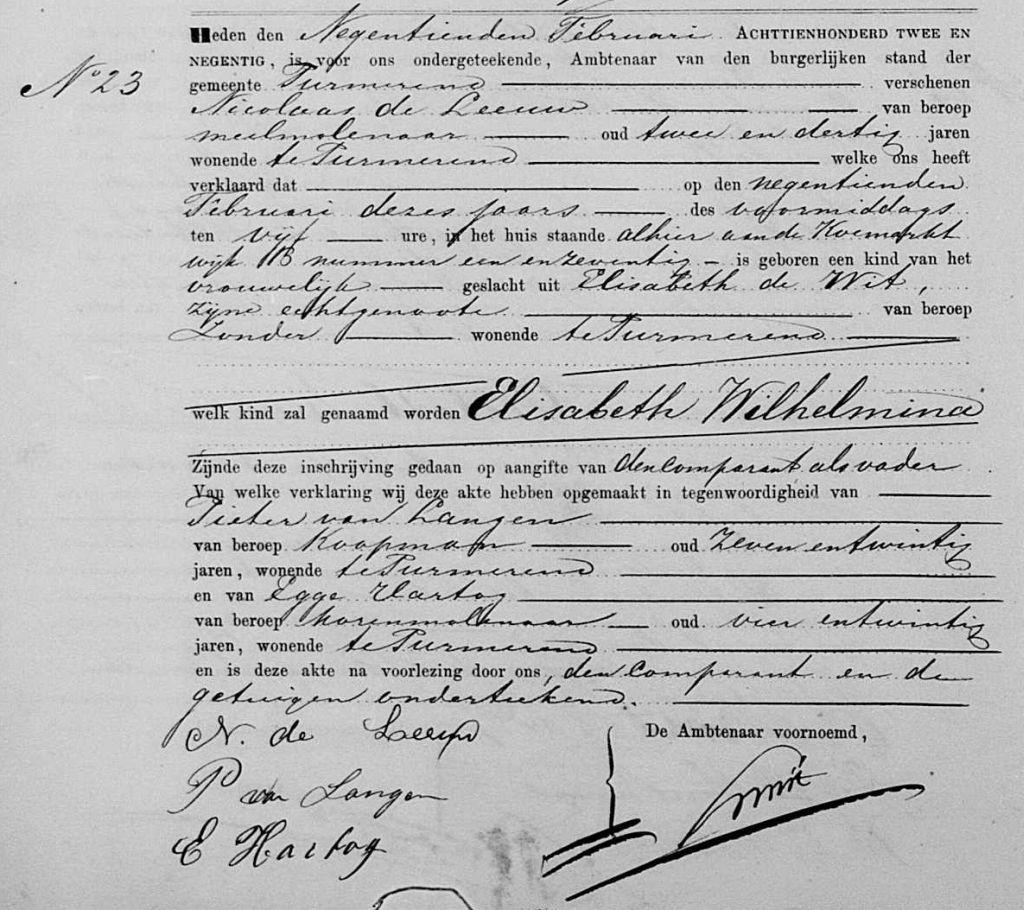 Heden den Negentienden Februari. ACHTTIENHONDERD TWEE EN
NEGENTIG, is voor ons ondergeteekende, Ambtenaar van den burgerlijken stand der
No 23
gemeente Purmerend verschenen
Nicolaas de Leeuw van beroep
meelmolenaar oud twee en dertig jaren
wonende te Purmerend welke ons heeft
verklaard dat op den negentienden
Februari dezes jaars des voormiddags
ten vijf ure, in het huis staande alhier aan de Koemarkt
wijk B nummer een en zeventig is geboren een kind van het
vrouwelijk geslacht uit Elisabeth de Wit,
zijne echtgenoote van beroep
Zonder wonende te Purmerend
welk kind zal genaamd worden Elisabeth Wilhelmina
Zijnde deze inschrijving gedaan op aangifte van den comparant als vader
Van welke verklaring wij deze akte hebben opgemaakt in tegenwoordigheid van
Pieter van Langen
van beroep Koopman oud Zeven en twintig
jaren, wonende te Purmerend
en van Egge Hartog
van beroep Korenmolenaar oud vier en twintig
jaren, wonende te Purmerend
en is deze akte na voorlezing door ons, den comparant en de
getuigen onderteekend.
N. de Leeuw
De Ambtenaar voornoemd,
P van Langen
E Hartog